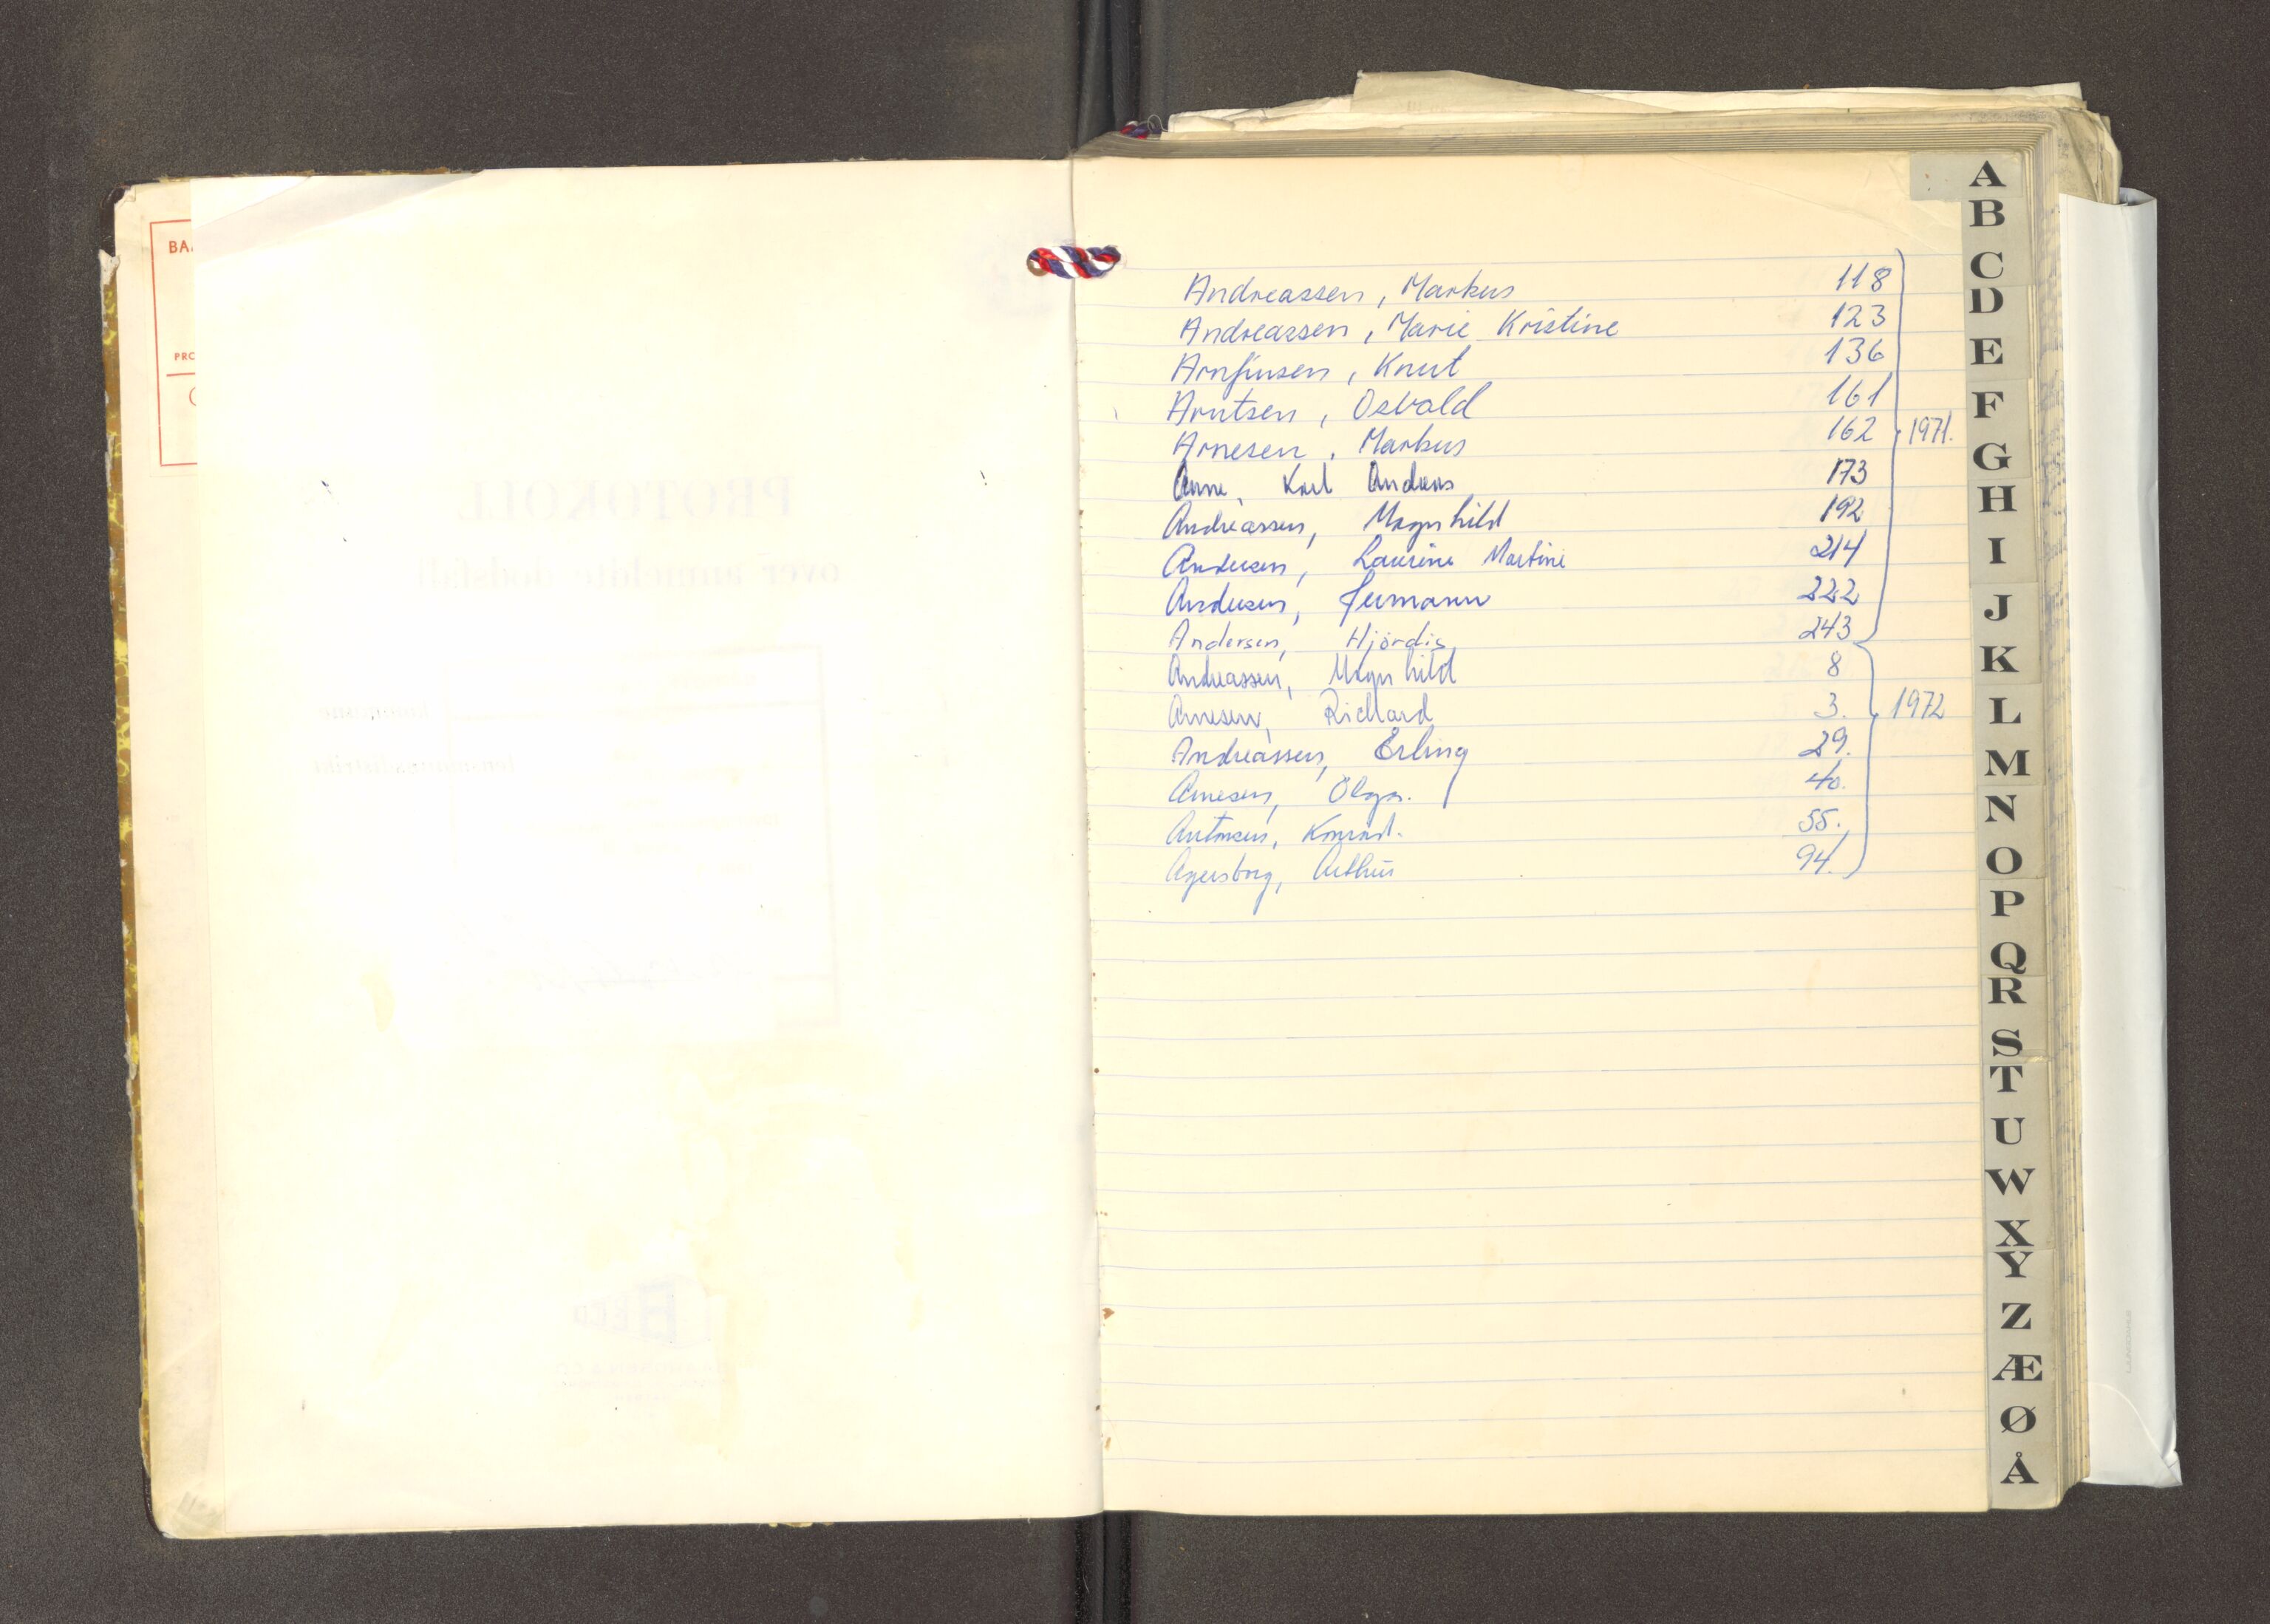 Andreassen, Markus 118
Andreassen, Marie Kristine 123
Arnfinsen, Knut 136
Arntsen, Osvald 161
Arnesen, Markus 162
1971.
Karl Andreas 173
Andreassen, Magnhild 192
Andersen, Laurine Martine 214
Andersen, Hermann 222
Andersen, Hjördis 243
Andreassen, Magnhild 8
Arnesen, Richard 3.
1972
Andreassen, Erling 29.
Arnesen, Olga. 40.
Antonsen, Konrad. 55.
Agersborg, Arthur 94.
A
B
C
D
E
F
G
H
I
J
K
L
M
N
O
P
Q
R
S
T
U
W
X
Y
Z
Æ
Ø
Å
PROTOKOLL
over anmeldte dødsfall